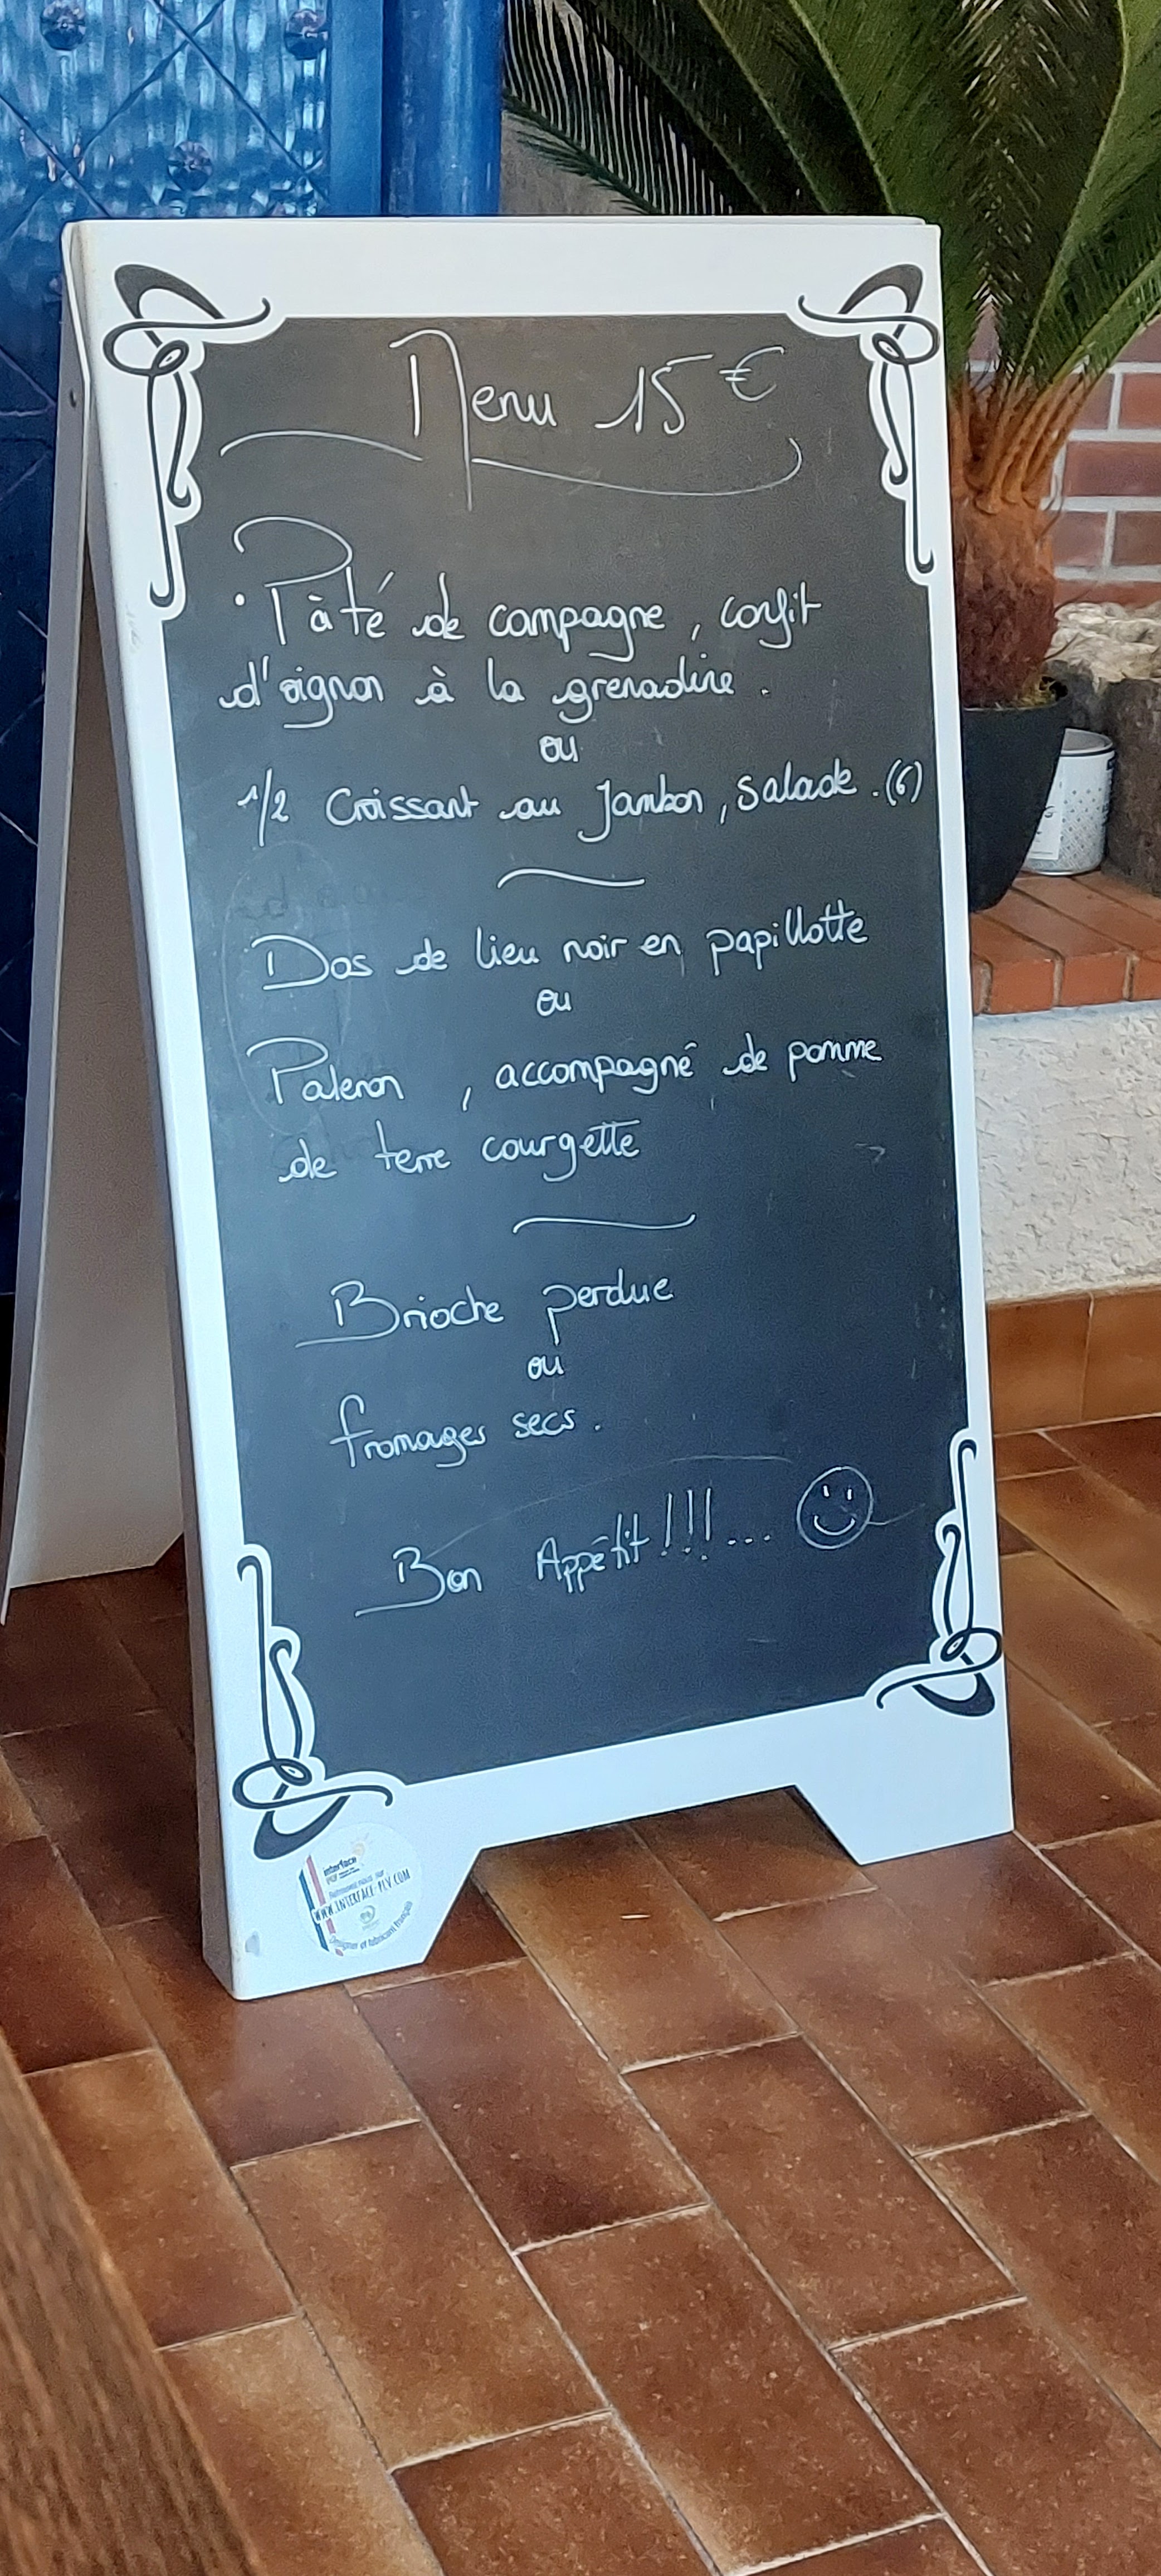 Menu 15€
• Pâté de campagne, confit
d'oignon à la grenadine.
ou
1/2 Croissant au Jambon, salade. (6)
Dos de lieu noir en papillotte
ou
Paleron , accompagné de pomme
de terre courgette
Brioche perdue
ou
fromages secs.
Bon Appétit!!!...
interface
PLV
Retrouvez-nous sur
WWW.INTERFACE-PLV.COM
Designer et fabricant français